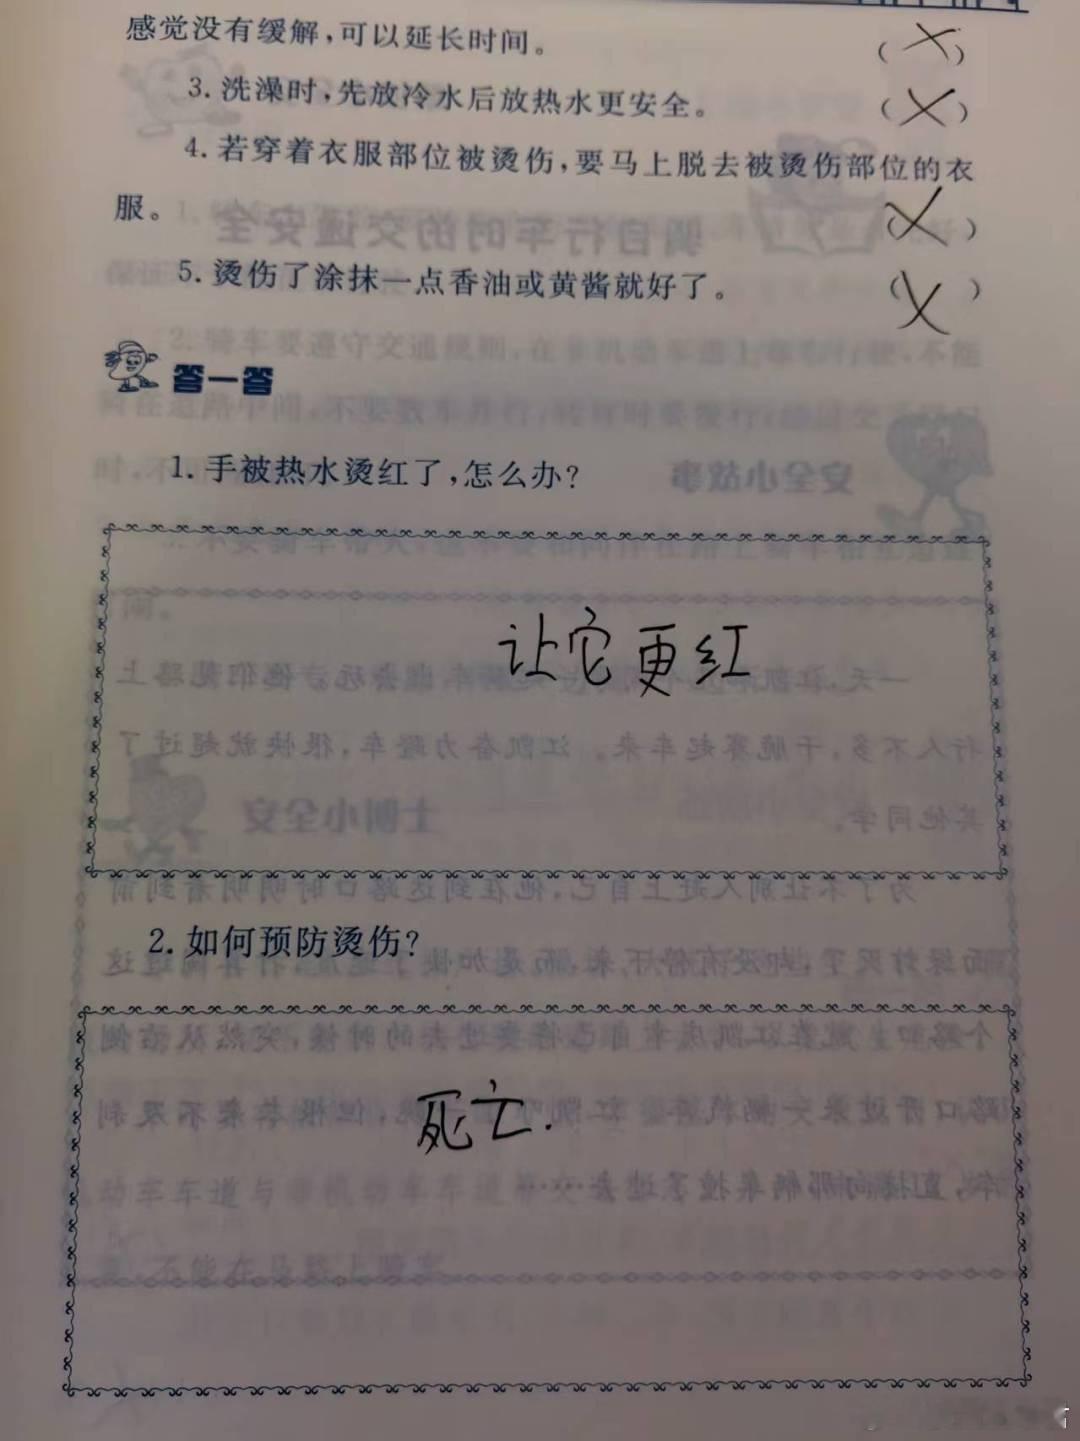 感觉没有缓解，可以延长时间。 (X)
3. 洗澡时，先放冷水后放热水更安全。 (X)
4. 若穿着衣服部位被烫伤，要马上脱去被烫伤部位的衣
服。 (X)
5. 烫伤了涂抹一点香油或黄酱就好了。 (X)
答一答
1. 手被热水烫红了，怎么办？
让它更红
2. 如何预防烫伤？
死亡.